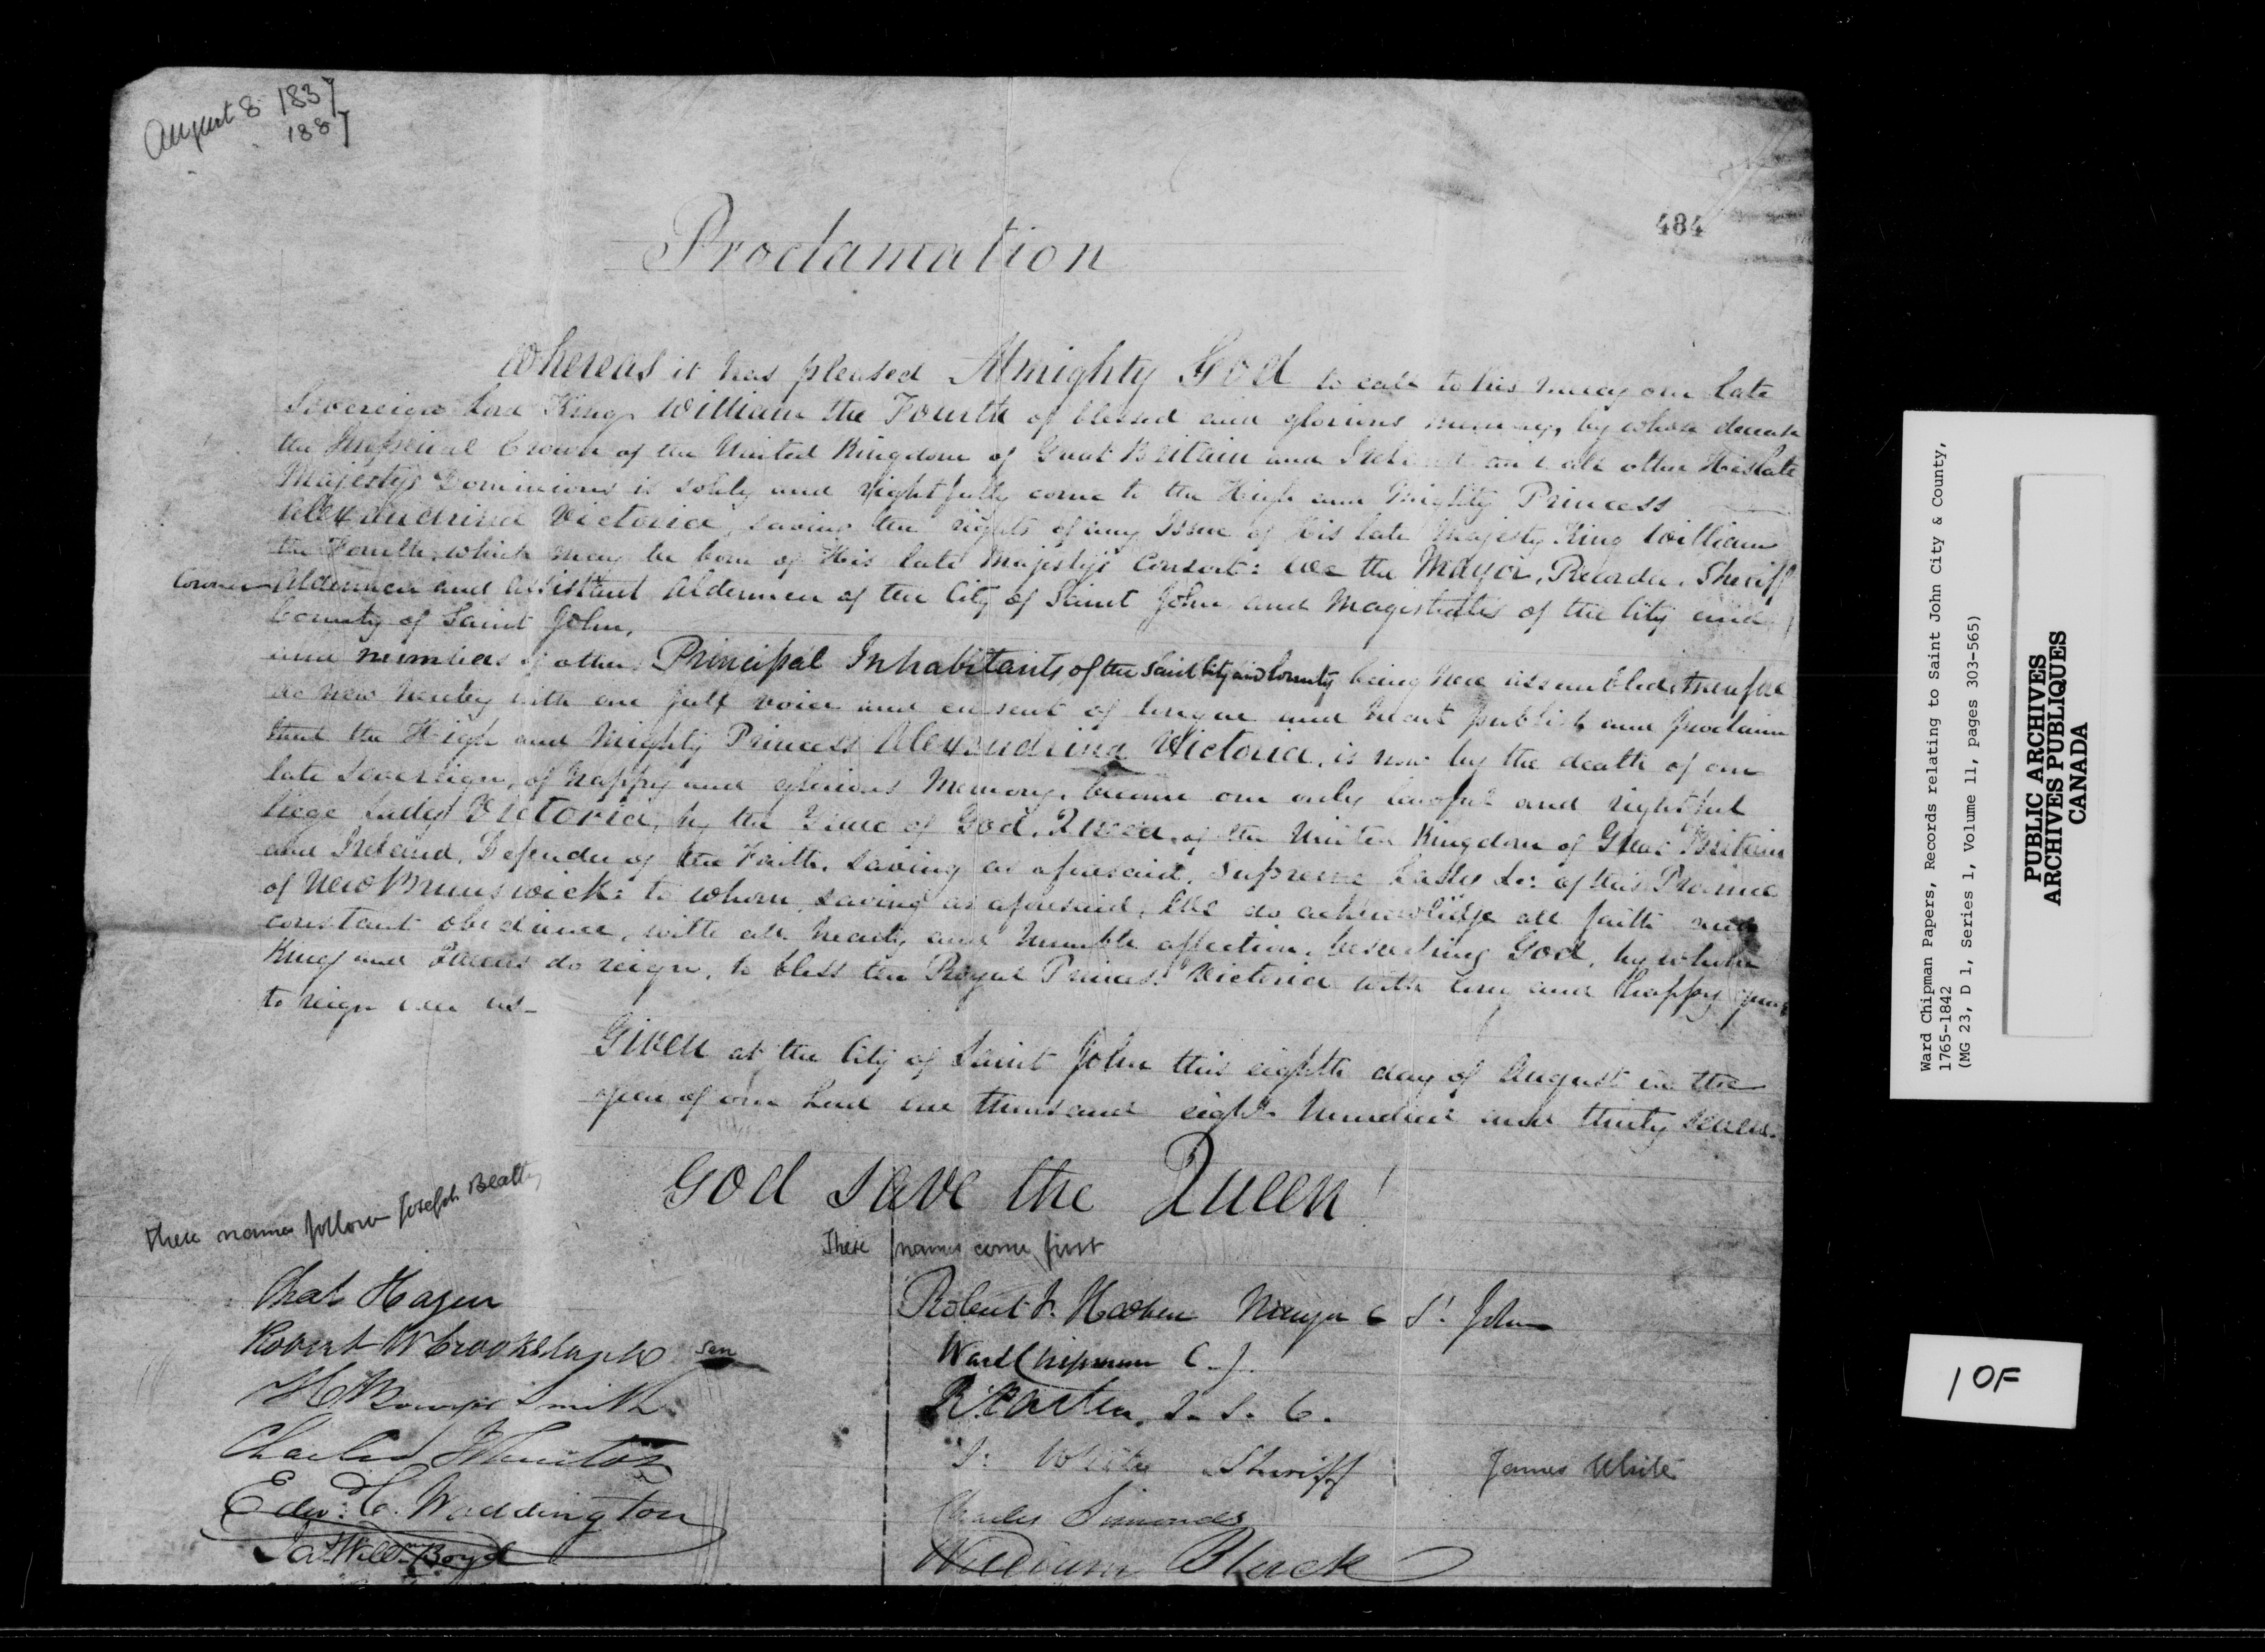 August 8 1837
1887
484
Proclamation
Whereas it has pleased Almighty God to call to his mercy our late
Sovereign Lord King William the Fourth of blessed and glorious memory, by whose decease
the Imperial Crown of the United Kingdom of Great Britain and Ireland and all other His late
Majesty's Dominions is solely and rightfully come to the High and Mighty Princess
Alexandrina Victoria, saving the rights of any Issue of His late Majesty King William
the Fourth which may be born of His late Majesty's Consort: We the Mayor, Recorder, Sheriff
Coroner Aldermen and Assistant Aldermen of the City of Saint John and Magistrates of the City and
County of Saint John,
and numbers of other Principal Inhabitants of the said City and County being here assembled, therefore
do now hereby with one full voice and consent of tongue and heart publish and proclaim
that the High and Mighty Princess Alexandrina Victoria, is now by the death of our
late Sovereign, of happy and glorious Memory, become our only lawful and rightful
liege Lady Victoria, by the Grace of God, Queen of the United Kingdom of Great Britain
and Ireland, Defender of the Faith, saving as aforesaid, Supreme Lady &c: of this Province
of New Brunswick: to whom, saving as aforesaid, We do acknowledge all faith and
constant obedience, with all hearty and humble affection, beseeching God, by whom
Kings and Queens do reign, to bless the Royal Princess Victoria with long and happy years
to reign over us-
Given at the City of Saint John this eighth day of August in the
year of our Lord one thousand eight hundred and thirty seven.
God save the Queen!
These names follow Joseph Beatty
These names come first
Chas Hazen
Robert W Crookshank Sen
H Bowyer Smith
Charles J
Edwd. C. Waddington
Jas Willm Boyd
Robert F. Hazen Mayor C St. John
Ward Chipman C. J.
J. White Sheriff James White
Charles Simonds
William Black
Ward Chipman Papers, Records relating to Saint John City & County,
1765-1842
(MG 23, D 1, Series 1, Volume 11, pages 303-565)
PUBLIC ARCHIVES
ARCHIVES PUBLIQUES
CANADA
1 OF